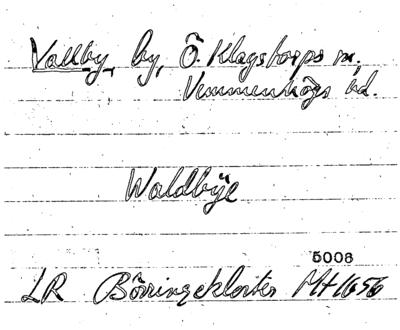 Vallby, by, Ö. Klagstorps sn,
Vemmenhögs hd.
Waldbÿe
5006
LR Börringekloster Mt 1656